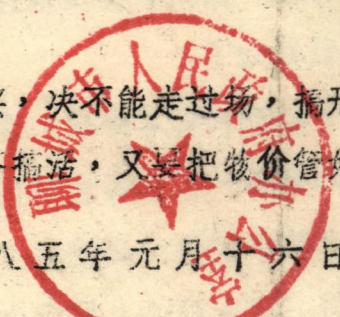 ，决不能走过场，搞形
搞活，又要把物价管
八五年元月十六日
聊城市人民政府办公室